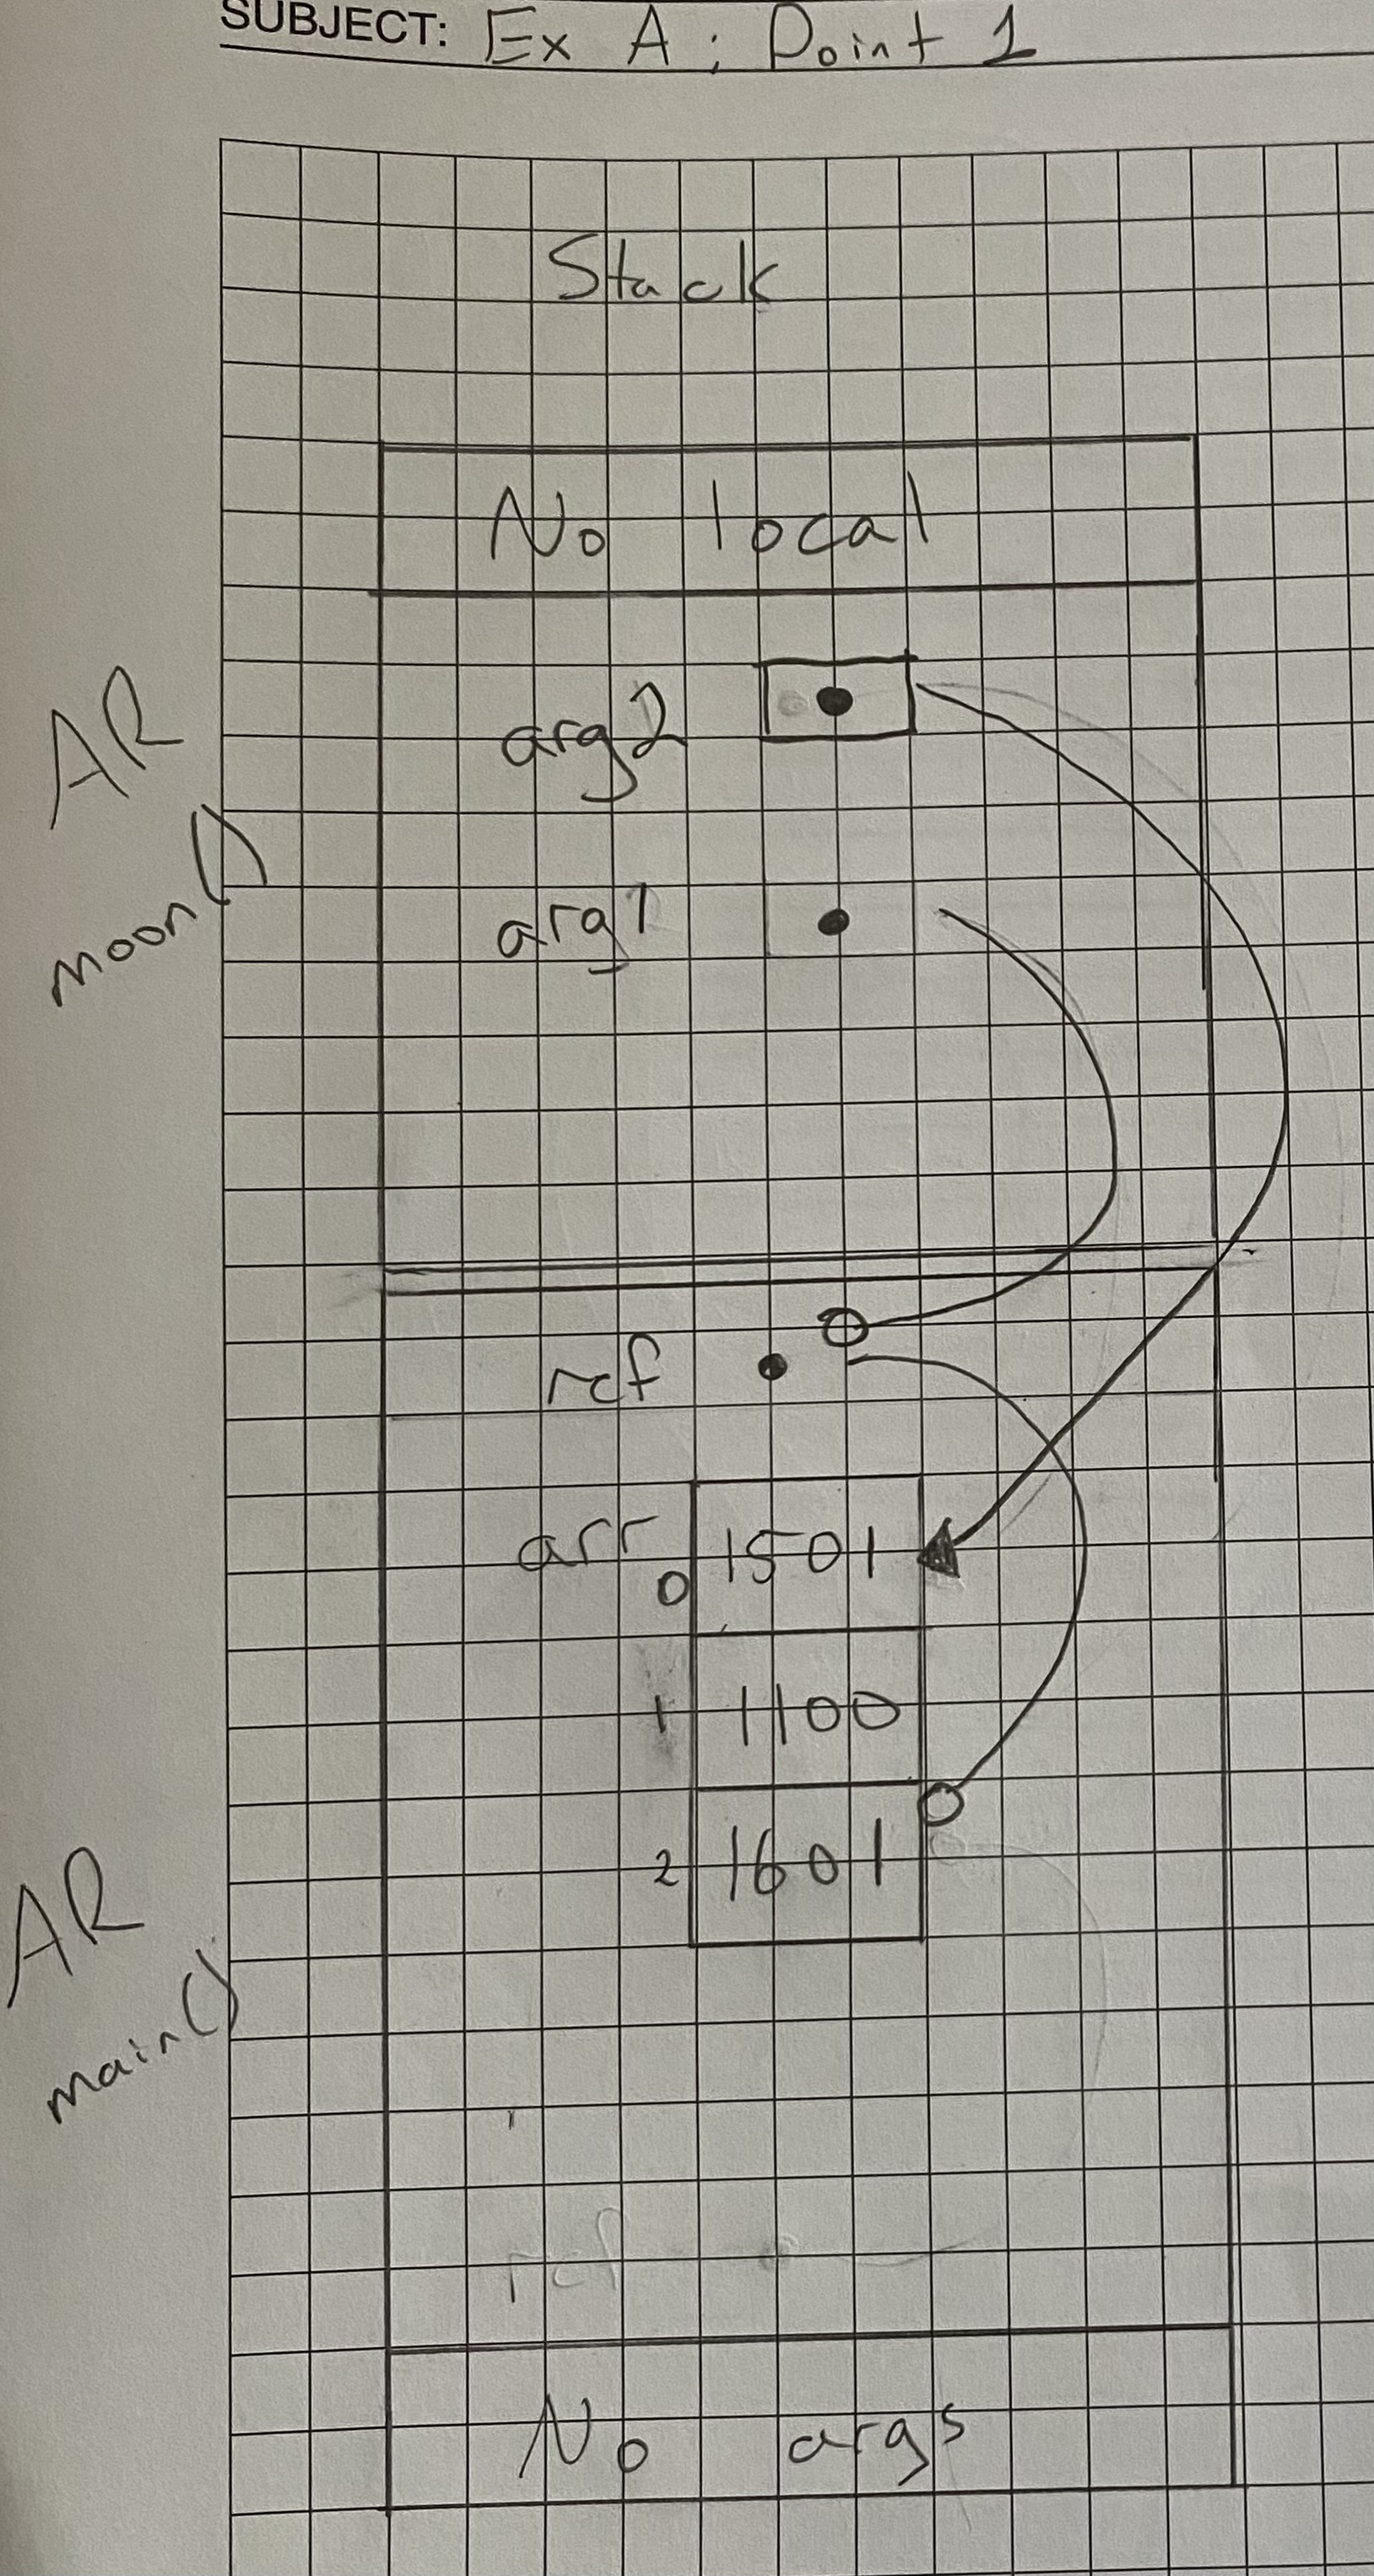 SUBJECT: Ex A; Point 1
Stack
No local
AR
moon()
arg2
arg1
ref
arr
0 1501
1 1100
2 1601
AR
main()
ref
No args